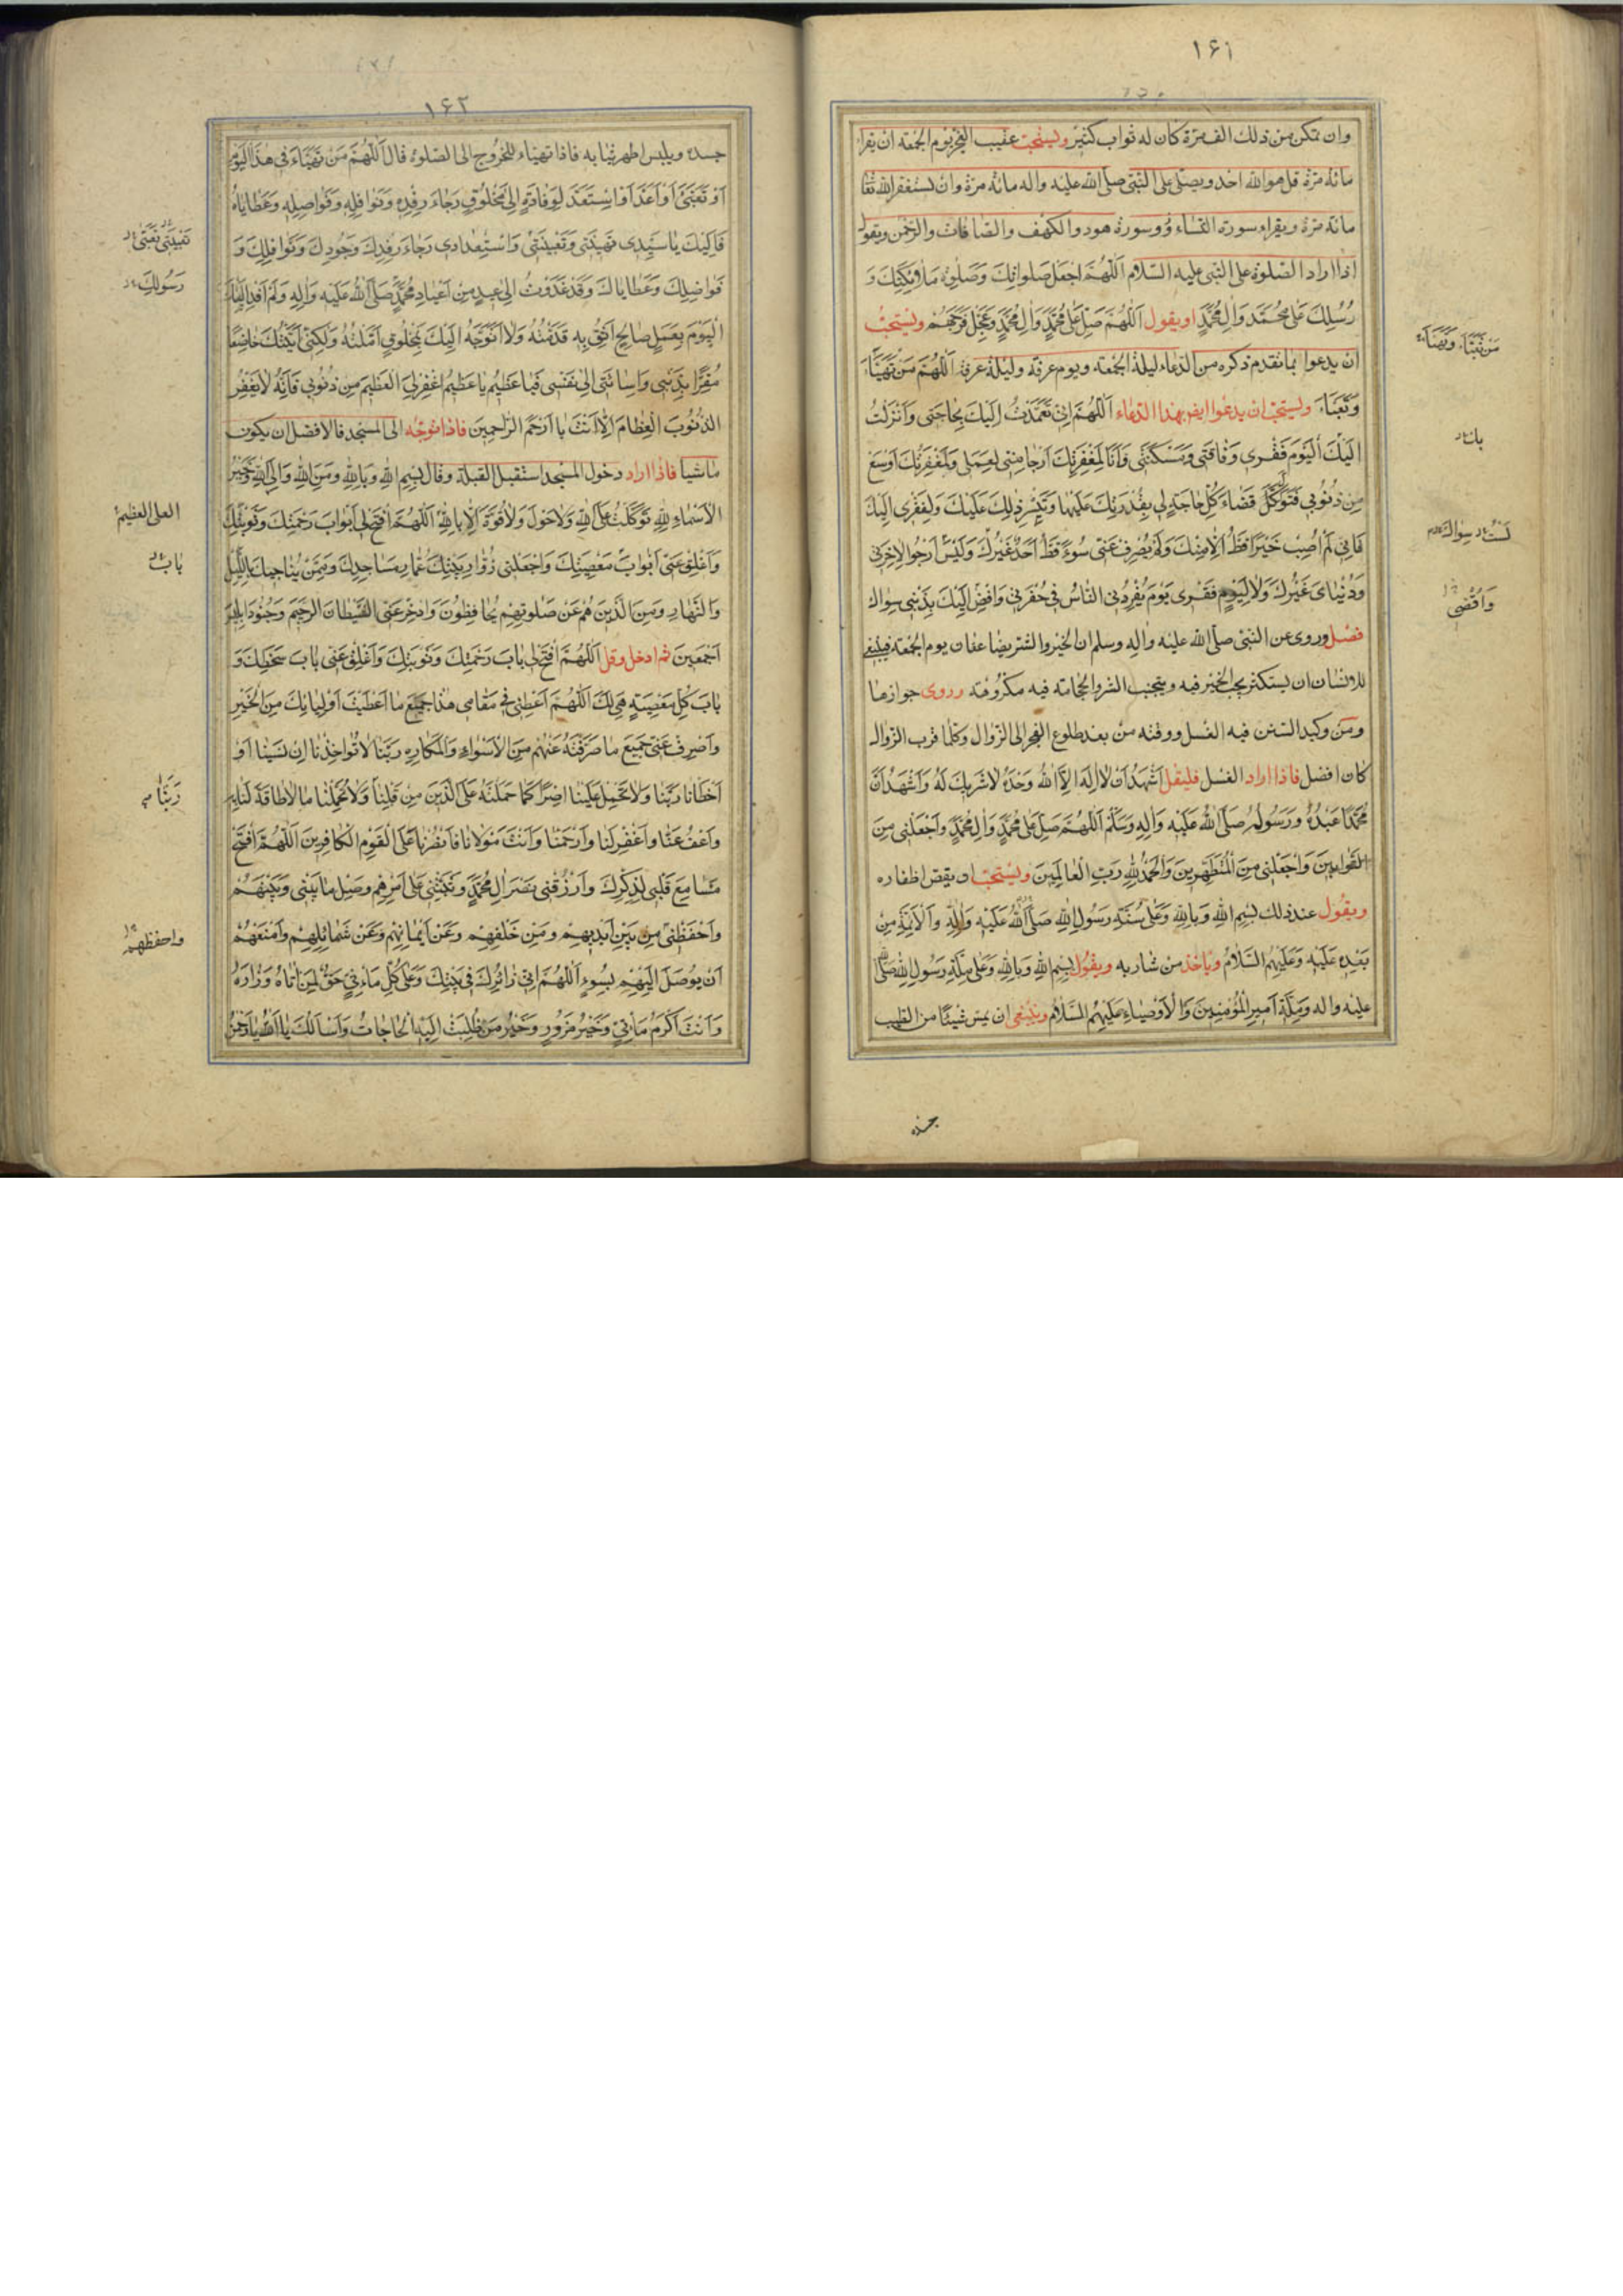 ۱۶۱
وان تمكن من ذلك الف مرة كان له ثواب كثير ويستحب عقيب الفجر يوم الجمعة ان يقرا
مائة مرة قل هو الله احد ويصلى على النبى صلى الله عليه واله مائة مرة وان يستغفر الله تعا
مائة مرة ويقراء سورة النساء وسورة هود والكهف والصافات والرحمن ويقول
اذا اراد الصلوة على النبى عليه السلام اَللّٰهُمَّ اجْعَلْ صَلَواتِكَ وَصَلٰوةَ مَلٰٓئِكَتِكَ وَ
رُسُلِكَ عَلىٰ مُحَمَّدٍ وَاٰلِ مُحَمَّدٍ او يقول اَللّٰهُمَّ صَلِّ عَلىٰ مُحَمَّدٍ وَاٰلِ مُحَمَّدٍ وَعَجِّلْ فَرَجَهُمْ ويستحب
ان يدعوا بما تقدم ذكره من الدعاء ليلة الجمعة ويوم عرفة وليلة عرفة اَللّٰهُمَّ مَنْ تَهَيَّأَ
وَتَعَبَّاَءَ ويستحب ان يدعوا ايضا بهذا الدعاء اَللّٰهُمَّ اِنّى تَعَمَّدْتُ اِلَيْكَ بِحاجَتى وَاَنْزَلْتُ
اِلَيْكَ الْيَوْمَ فَقْرى وَفاقَتى وَمَسْكَنَتى وَاَنَا لِمَغْفِرَتِكَ اَرْجا مِنّى لِعَمَلى وَلَمَغْفِرَتُكَ اَوْسَعُ
مِنْ ذُنُوبى فَتَوَكَّلْ قَضاءَ كُلِّ حاجَةٍ لى بِقُدْرَتِكَ عَلَيْها وَتَيَسُّرِ ذٰلِكَ عَلَيْكَ وَلِفَقْرى اِلَيْكَ
فَاِنّى لَمْ اُصِبْ خَيْراً قَطُّ اِلاّ مِنْكَ وَلَمْ يَصْرِفْ عَنّى سُوءً قَطُّ اَحَدٌ غَيْرُكَ وَلَيْسَ اَرْجُو لِاٰخِرَتى
وَدُنْياىَ غَيْرَكَ وَلا لِيَوْمِ فَقْرى يَوْمَ يُفْرِدُنِى النّاسُ فى حُفْرَتى وَاُفْضى اِلَيْكَ بِذَنْبى سِواكَ
فصل وروى عن النبى صلى الله عليه واله وسلم ان الخير والشر يضاعفان يوم الجمعة فينبغى
للانسان ان يستكثر من الخير فيه ويتجنب الشر والحجامة فيه مكروهة وروى جوازها
ومن وكيد السنن فيه الغسل ووقته من بعد طلوع الفجر الى الزوال وكلما قرب الزوال
كان افضل فاذا اراد الغسل فليقل اَشْهَدُ اَنْ لا اِلٰهَ اِلاَّ اللهُ وَحْدَهُ لا شَرِيكَ لَهُ وَاَشْهَدُ اَنَّ
مُحَمَّداً عَبْدُهُ وَرَسُولُهُ صَلَّى اللهُ عَلَيْهِ وَاٰلِهِ وَسَلَّمَ اَللّٰهُمَّ صَلِّ عَلىٰ مُحَمَّدٍ وَاٰلِ مُحَمَّدٍ وَاجْعَلْنى مِنَ
التَّوّابينَ وَاجْعَلْنى مِنَ الْمُتَطَهِّرينَ وَالْحَمْدُ لِلّٰهِ رَبِّ الْعالَمينَ ويستحب ان يقص اظفاره
ويقول عند ذلك بِسْمِ اللهِ وَبِاللهِ وَعَلىٰ سُنَّةِ رَسُولِ اللهِ صَلَّى اللهُ عَلَيْهِ وَاٰلِهِ وَالْاَئِمَّةِ مِنْ
بَعْدِهِ عَلَيْهِ وَعَلَيْهِمُ السَّلامُ وياخذ من شاربه ويقول بِسْمِ اللهِ وَبِاللهِ وَعَلىٰ مِلَّةِ رَسُولِ اللهِ صَلَّى اللهُ
عليه واله وَمِلَّةِ اَميرِ الْمُؤْمِنينَ وَالْاَوْصِياءِ عَلَيْهِمُ السَّلامُ وينبغى ان يمس شيئا من الطيب
باب
سواك
وَاُفْضى
۱۶۲
جسده ويلبس اطهر ثيابه فاذا تهياء للخروج الى الصلوة قال اَللّٰهُمَّ مَنْ تَهَيَّاَءَ فى هٰذَا الْيَوْمِ
اَوْ تَعَبَّىَ اَوْ اَعَدَّ اَوِ اسْتَعَدَّ لِوِفادَةٍ اِلىٰ مَخْلُوقٍ رَجاءَ رِفْدِهِ وَنَوافِلِهِ وَفَواضِلِهِ وَعَطاياهُ
فَاِلَيْكَ يا سَيِّدى تَهْيِئَتى وَتَعْبِيَتى وَاسْتِعْدادى رَجاءَ رِفْدِكَ وَجُودِكَ وَنَوافِلِكَ وَ
فَواضِلِكَ وَعَطاياكَ وَقَدْ غَدَوْتُ اِلىٰ عيدٍ مِنْ اَعْيادِ مُحَمَّدٍ صَلَّى اللهُ عَلَيْهِ وَاٰلِهِ وَلَمْ اَفِدْ اِلَيْكَ
الْيَوْمَ بِعَمَلٍ صالِحٍ اَثِقُ بِهِ قَدَّمْتُهُ وَلا اَتَوَجَّهُ اِلَيْكَ بِمَخْلُوقٍ اَمَّلْتُهُ وَلٰكِنّى اَتَيْتُكَ خاضِعاً
مُقِرّاً بِذَنْبى وَاِساءَتى اِلىٰ نَفْسى فَيا عَظيمُ يا عَظيمُ اغْفِرْ لِىَ الْعَظيمَ مِنْ ذُنُوبى فَاِنَّهُ لا يَغْفِرُ
الذُّنُوبَ الْعِظامَ اِلاّ اَنْتَ يا اَرْحَمَ الرّاحِمينَ فاذا توجه الى المسجد فالافضل ان يكون
ماشيا فاذا اراد دخول المسجد استقبل القبلة وقال بِسْمِ اللهِ وَبِاللهِ وَمِنَ اللهِ وَاِلَى اللهِ وَخَيْرُ
الْاَسْماءِ لِلّٰهِ تَوَكَّلْتُ عَلَى اللهِ وَلا حَوْلَ وَلا قُوَّةَ اِلاّ بِاللهِ اَللّٰهُمَّ افْتَحْ لى اَبْوابَ رَحْمَتِكَ وَتَوْبَتِكَ
وَاَغْلِقْ عَنّى اَبْوابَ مَعْصِيَتِكَ وَاجْعَلْنى مِنْ زُوّارِ بَيْتِكَ عُمّارِ مَساجِدِكَ وَمِمَّنْ يُناجيكَ بِاللَّيْلِ
وَالنَّهارِ وَمِنَ الَّذينَ هُمْ عَنْ صَلوتِهِمْ يُحافِظُونَ وَادْحَرْ عَنِّى الشَّيْطانَ الرَّجيمَ وَجُنُودَ اِبْليسَ
اَجْمَعينَ ثم ادخل وقل اَللّٰهُمَّ افْتَحْ لى بابَ رَحْمَتِكَ وَتَوْبَتِكَ وَاَغْلِقْ عَنّى بابَ سَخَطِكَ وَ
بابَ كُلِّ مَعْصِيَةٍ هِىَ لَكَ اَللّٰهُمَّ اَعْطِنى فى مَقامى هٰذا جَميعَ ما اَعْطَيْتَ اَوْلِياءَكَ مِنَ الْخَيْرِ
وَاصْرِفْ عَنّى جَميعَ ما صَرَفْتَهُ عَنْهُمْ مِنَ الْاَسْواءِ وَالْمَكارِهِ رَبَّنا لا تُؤاخِذْنا اِنْ نَسينا اَوْ
اَخْطَأْنا رَبَّنا وَلا تَحْمِلْ عَلَيْنا اِصْراً كَما حَمَلْتَهُ عَلَى الَّذينَ مِنْ قَبْلِنا وَلا تُحَمِّلْنا ما لا طاقَةَ لَنا بِهِ
وَاعْفُ عَنّا وَاغْفِرْ لَنا وَارْحَمْنا وَاَنْتَ مَوْلانا فَانْصُرْنا عَلَى الْقَوْمِ الْكافِرينَ اَللّٰهُمَّ افْتَحْ
مَسامِعَ قَلْبى لِذِكْرِكَ وَارْزُقْنى نَصْرَ اٰلِ مُحَمَّدٍ وَثَبِّتْنى عَلىٰ اَمْرِهِمْ وَصِلْ ما بَيْنى وَبَيْنَهُمْ
وَاحْفَظْنى مِنْ بَيْنِ اَيْديهِمْ وَمِنْ خَلْفِهِمْ وَعَنْ اَيْمانِهِمْ وَعَنْ شَمائِلِهِمْ وَامْنَعْهُمْ
اَنْ يُوصَلَ اِلَيْهِمْ بِسُوءٍ اَللّٰهُمَّ اِنّى زائِرُكَ فى بَيْتِكَ وَعَلىٰ كُلِّ مَاْتِىٍّ حَقٌّ لِمَنْ اَتاهُ وَزارَهُ
وَاَنْتَ اَكْرَمُ مَاْتِىٍّ وَخَيْرُ مَزُورٍ وَخَيْرُ مَنْ طُلِبَتْ اِلَيْهِ الْحاجاتُ وَاَسْاَلُكَ يا اَللهُ يا رَحْمٰنُ
رَسُولِكَ
العلى العظيم
باب
رَبَّنا
واحفظهم